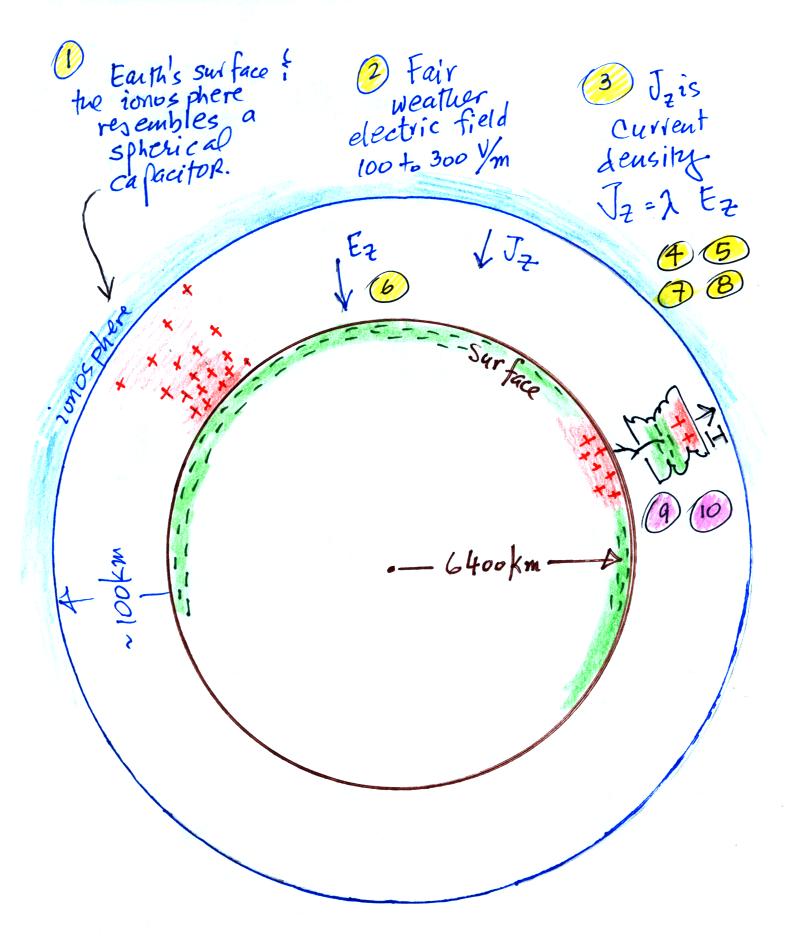 1
Earth's surface &
the ionosphere
resembles a
spherical
capacitor.
2 Fair
weather
electric field
100 to 300 V/m
3 Jz is
current
density
Jz = λ Ez
4 5
7 8
Ez
6
Jz
ionosphere
surface
++
I
9 10
6400km
~100km